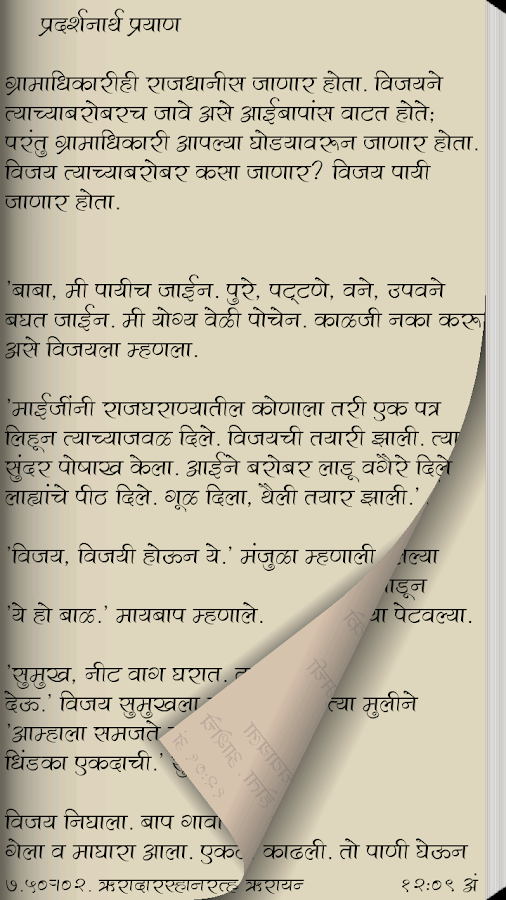 प्रदर्शनार्थ प्रयाण
ग्रामाधिकारीही राजधानीस जाणार होता. विजयने
त्याच्याबरोबरच जावे असे आईबापांस वाटत होते;
परंतु ग्रामाधिकारी आपल्या घोडयावरून जाणार होता.
विजय त्याच्याबरोबर कसा जाणार? विजय पायी
जाणार होता.
'बाबा, मी पायीच जाईन. पुरे, पट्टणे, वने, उपवने
बघत जाईन. मी योग्य वेळी पोचेन. काळजी नका करू
असे विजयला म्हणला.
'माईजींनी राजघराण्यातील कोणाला तरी एक पत्र
लिहून त्याच्याजवळ दिले. विजयची तयारी झाली. त्या
सुंदर पोषाख केला. आईने बरोबर लाडू वगैरे दिले
लाह्यांचे पीठ दिले. गूळ दिला, थैली तयार झाली.'
'विजय, विजयी होऊन ये.' मंजुळा म्हणाली
'ये हो बाळ.' मायबाप म्हणाले. पेटवल्या.
'सुमुख, नीट वाग घरात.
देऊ.' विजय सुमुखला त्या मुलीने
'आम्हाला समजते
धिंडका एकदाची.'
विजय निघाला. बाप गावा
गेला व माघारा आला. काढली. तो पाणी घेऊन
१२:०९ अं